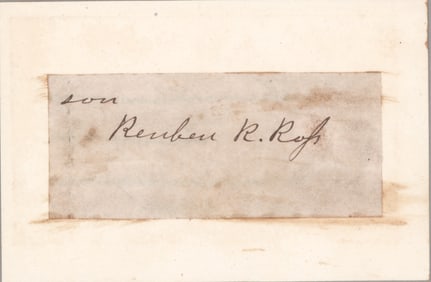 son
Reuben R. Ross